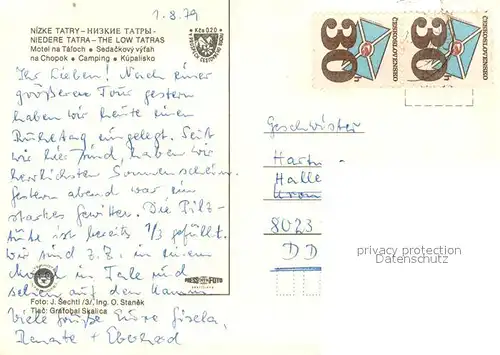 1.8.79
NÍZKE TATRY - НИЗКИЕ ТАТРЫ -
NIEDERE TATRA - THE LOW TATRAS
Motel na Táľoch • Sedačkový výťah
na Chopok • Camping • Kúpalisko
Kčs 0.20
Ihr Lieben! Nach einer
größeren Tour gestern
haben wir heute einen
Ruhetag eingelegt. Seit
wir hier sind, haben wir
herrlichsten Sonnenschein.
Gestern abend war ein
starkes Gewitter. Die Pilz-
tüte ist bereits 1/3 gefüllt.
Wir sind z.Z. in einem
Motel im Tale und
sehen auf den Kamm.
Viele Grüße Eure Gisela,
Renate + Eberhard
PRESSFOTO
BRATISLAVA
Foto: J. Šechtl /3/, Ing. O. Staněk
Tlač: Grafobal Skalica
ČESKOSLOVENSKO
30
ČESKOSLOVENSKO
30
Geschwister
Halle
8023
DD
privacy protection
DARMASERV.COM